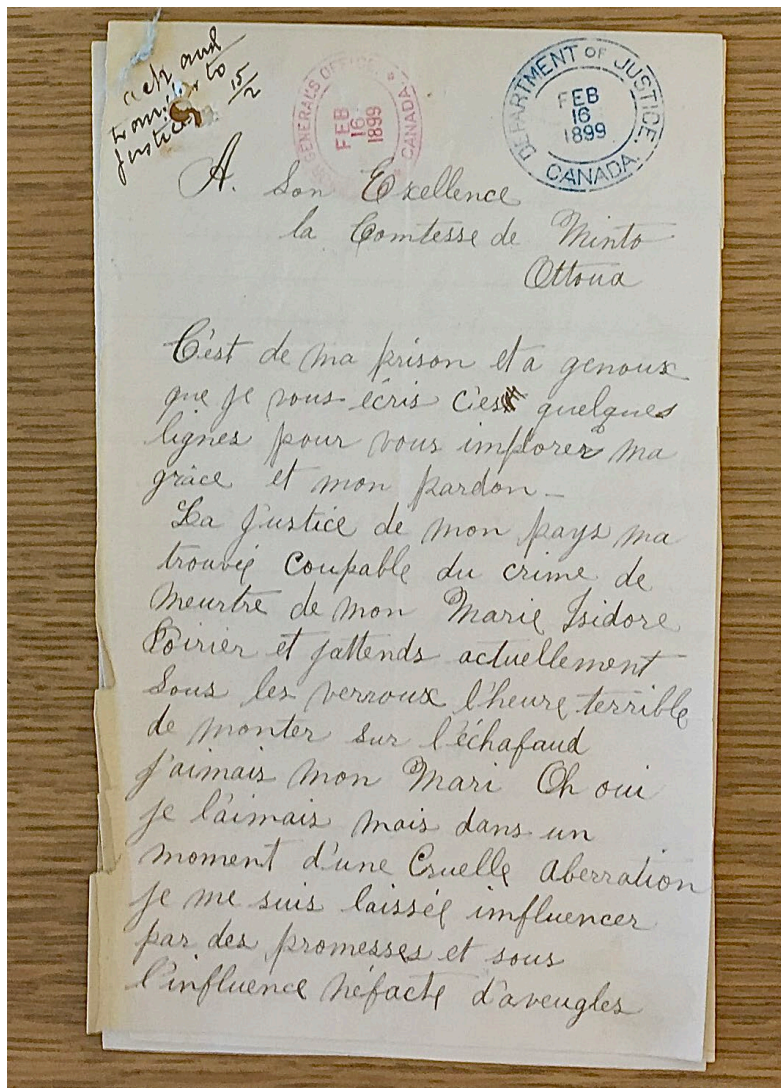 ack and
transfer to
Justice 15/2
GENERAL'S OFFICE. CANADA.
FEB
16
1899
DEPARTMENT OF JUSTICE.
FEB
16
1899
CANADA.
A. Son Exellence
la Comtesse de Minto
Ottoua
C'est de ma prison et a genoux
que je vous écris cies quelques
lignes pour vous implorer ma
grâce et mon pardon_
La Justice de mon pays ma
trouvée Coupable du crime de
meurtre de mon Marie Isidore
Poirier et j'attends actuellement
Sous les verroux l'heure terrible
de monter sur l'échafaud
j'aimais mon Mari Oh oui
je l'aimais mais dans un
moment d'une Cruelle Aberration
je me suis laissée imfluencer
par des promesses et sous
l'influence néfacte d'aveugles